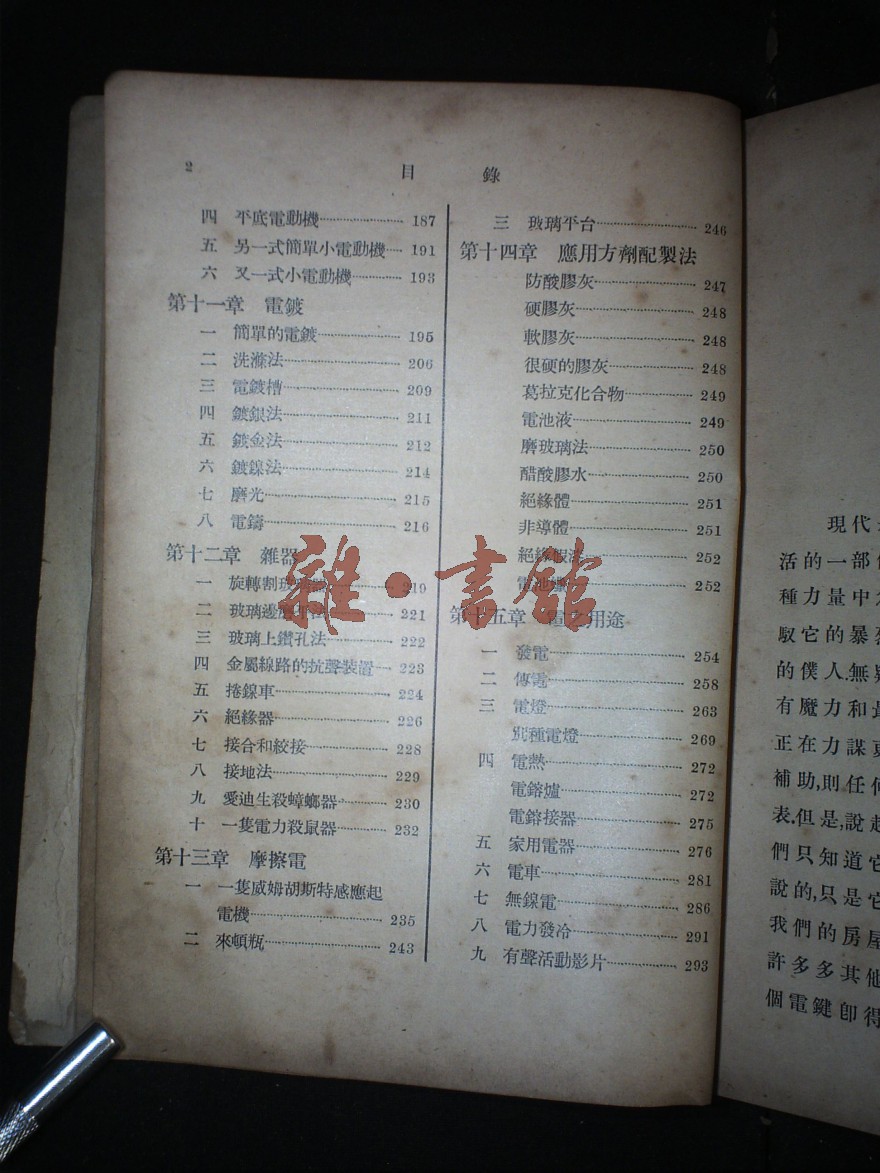 2 目錄
四 平底電動機 187
五 另一式簡單小電動機 191
六 又一式小電動機 193
第十一章 電鍍
一 簡單的電鍍 195
二 洗滌法 206
三 電鍍槽 209
四 鍍銀法 211
五 鍍金法 212
六 鍍鎳法 214
七 磨光 215
八 電鑄 216
第十二章 雜器
一 旋轉割玻 219
二 玻璃邊磨 法 221
三 玻璃上鑽孔法 222
四 金屬線路的抗聲裝置 223
五 捲線車 224
六 絕緣器 226
七 接合和絞接 228
八 接地法 229
九 愛迪生殺蟑螂器 230
十 一隻電力殺鼠器 232
第十三章 摩擦電
一 一隻威姆胡斯特感應起
電機 235
二 來頓瓶 243
三 玻璃平台 246
第十四章 應用方劑配製法
防酸膠灰 247
硬膠灰 248
軟膠灰 248
很硬的膠灰 248
葛拉克化合物 249
電池液 249
磨玻璃法 250
醋酸膠水 250
絕緣體 251
非導體 251
絕緣 252
電池 252
第十五章 電 用途
一 發電 254
二 傳電 258
三 電燈 263
別種電燈 269
四 電熱 272
電鎔爐 272
電鎔接器 275
五 家用電器 276
六 電車 281
七 無線電 286
八 電力發冷 291
九 有聲活動影片 293
雜·書館
現代
活的一部
種力量中
馭它的暴
的僕人.無
有魔力和
正在力謀
補助,則任何
表.但是,說起
們只知道它
說的,只是它
我們的房屋
許多多其他
個電鍵卽得